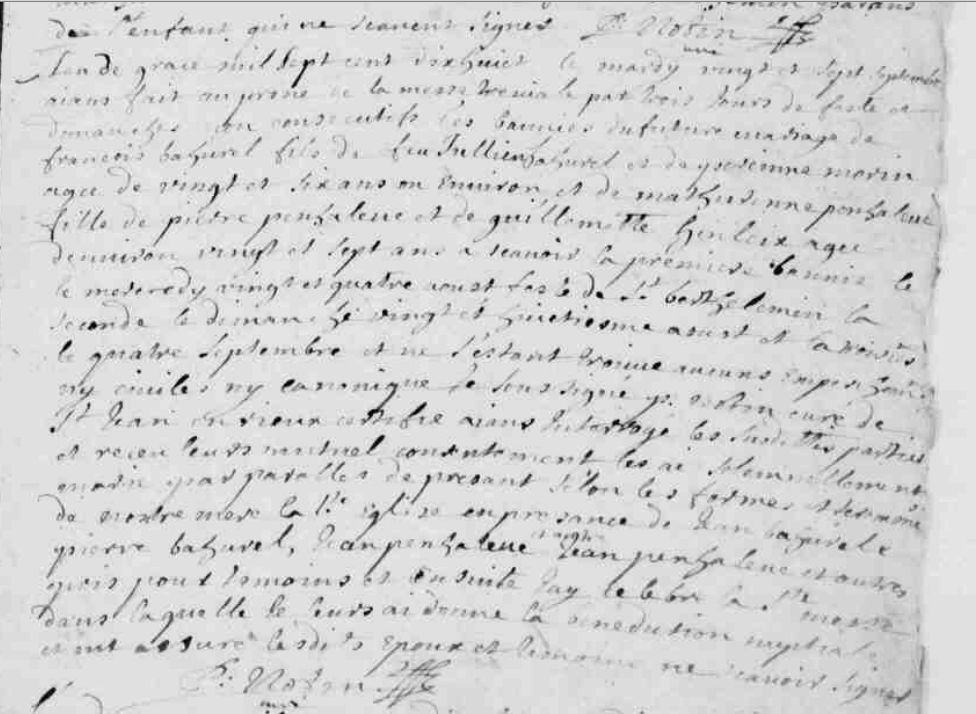 de l'enfant qui ne scavent signer P: Notin
Lan de grace mil sept cent dixhuict le mardy vingt et sept septembre
aians fait au prone de la messe par trois jours de feste et
dimanches ou consecutifs les bannies du future mariage de
francois bahurel fils de feu Jullien bahurel et de morin
agee de vingt et six ans ou environ et de mathurinne penhaleue
fille de pierre penhaleue et de guillemette agee
denviron vingt et sept ans a scavoir la premiere bannie le
le mercredy vingt et quatre aoust feste de St barthelemin la
seconde le dimanche vingt et huictiesme aoust et la
le quatre septembre et ne s'estant trouvé aucuns
ny civiles ny canonique Je soussigné p: notin curé de
St Jean certifie aians Interogé les susdittes parties
et receu leurs mutuel consentement les ai solemnellement
marié par parolles de presant selon les formes et
de nostre mere la Ste Eglise en presance de Jean bahurel
pierre bahurel, Jean penhaleue Jean penhaleue et autres
pour temoins et ensuite Jay celebré la Ste messe
dans laquelle Je leurs ai donné la benediction nuptiale
et ont assuré lesdits Epoux et temoins ne scavoir signer
P: Notin